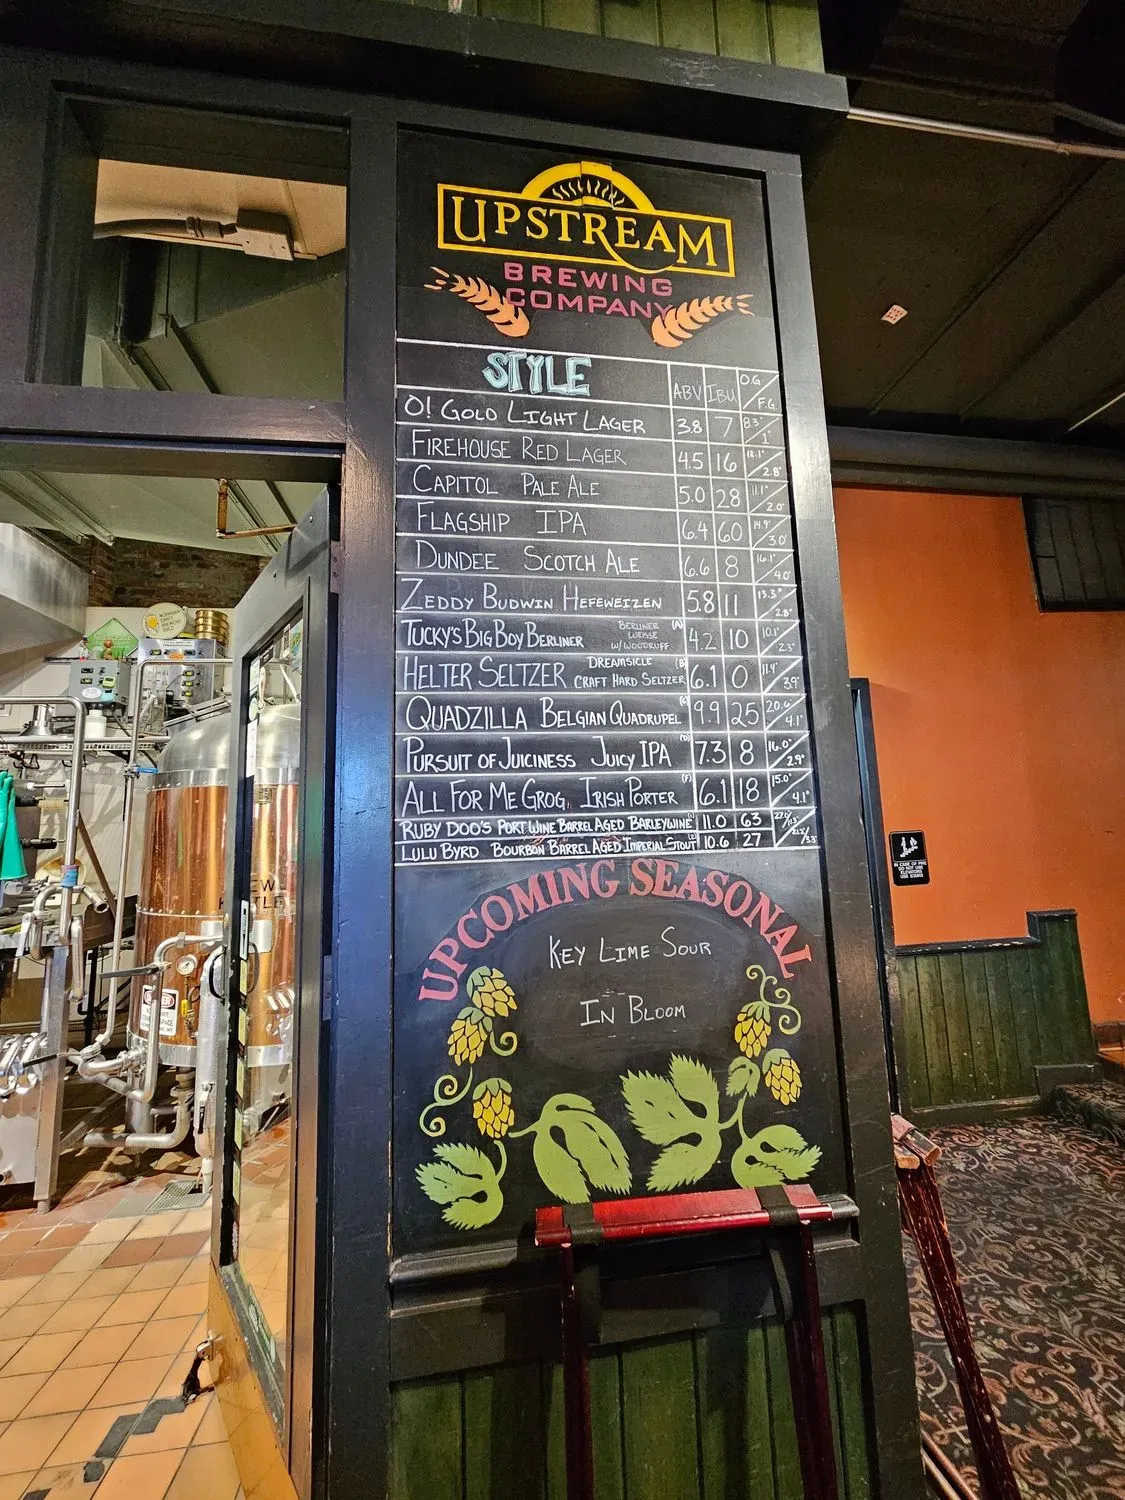 UPSTREAM
BREWING
COMPANY
STYLE ABV IBU O.G / F.G.
O! GOLD LIGHT LAGER 3.8 7 8.3° / 1°
FIREHOUSE RED LAGER 4.5 16 / 2.8°
CAPITOL PALE ALE 5.0 28 11.1° / 2.0°
FLAGSHIP IPA 6.4 60 14.9° / 3.0°
DUNDEE SCOTCH ALE 6.6 8 16.1° / 4.0°
ZEDDY BUDWIN HEFEWEIZEN 5.8 11 13.3° / 2.8°
TUCKY'S BIG BOY BERLINER BERLINER WEISSE W/ WOODRUFF (A) 4.2 10 10.1° / 2.3°
HELTER SELTZER DREAMSICLE CRAFT HARD SELTZER (B) 6.1 0 11.4° / 3.9°
QUADZILLA BELGIAN QUADRUPEL 9.9 25 20.6° / 4.1°
PURSUIT OF JUICINESS JUICY IPA (D) 7.3 8 16.0° / 2.9°
ALL FOR ME GROG, IRISH PORTER (F) 6.1 18 15.0° / 4.1°
RUBY DOO'S PORT WINE BARREL AGED BARLEYWINE 11.0 63
LULU BYRD BOURBON BARREL AGED IMPERIAL STOUT 10.6 27
UPCOMING SEASONAL
KEY LIME SOUR
IN BLOOM
IN CASE OF FIRE
DO NOT USE
ELEVATORS
USE STAIRS